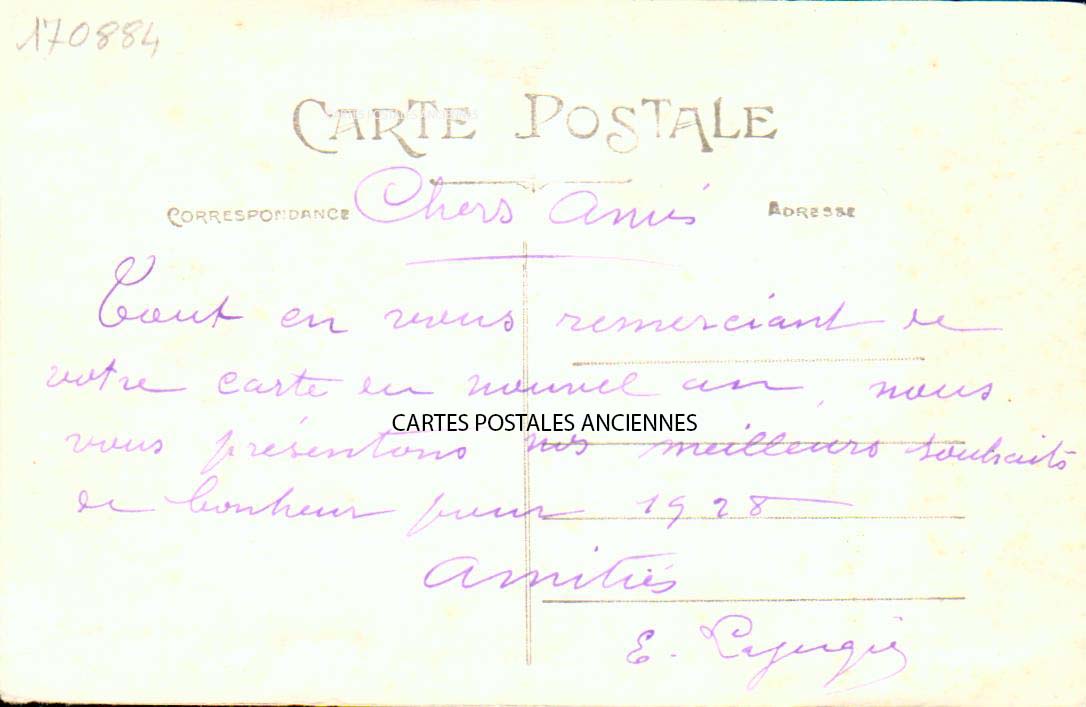 170884
CARTE POSTALE
CARTES POSTALES ANCIENNES
CORRESPONDANCE
Chers Amis
ADRESSE
Tout en vous remerciant de
votre carte du nouvel an, nous
CARTES POSTALES ANCIENNES
vous présentons nos meilleurs souhaits
de bonheur pour 1928
Amitiés
E. Lajugie